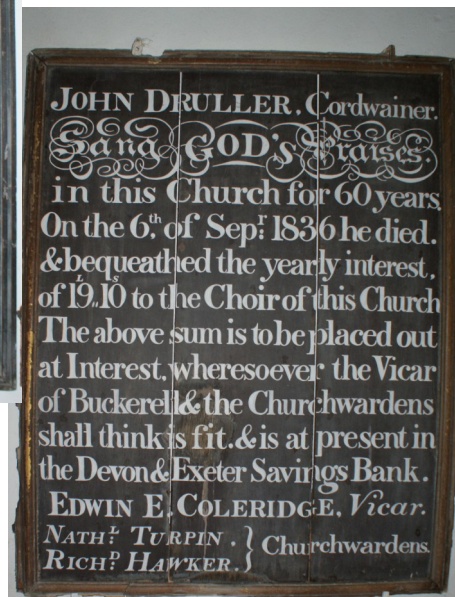 JOHN DRULLER, Cordwainer.
Sang GOD's Praises.
in this Church for 60 years.
On the 6th of Sepr 1836 he died.
& bequeathed the yearly interest,
of 19L.10s to the Choir of this Church
The above sum is to be placed out
at Interest, wheresoever the Vicar
of Buckerell & the Churchwardens
shall think is fit. & is at present in
the Devon & Exeter Savings Bank.
EDWIN E. COLERIDGE, Vicar.
NATHL TURPIN. } Churchwardens.
RICHD HAWKER.